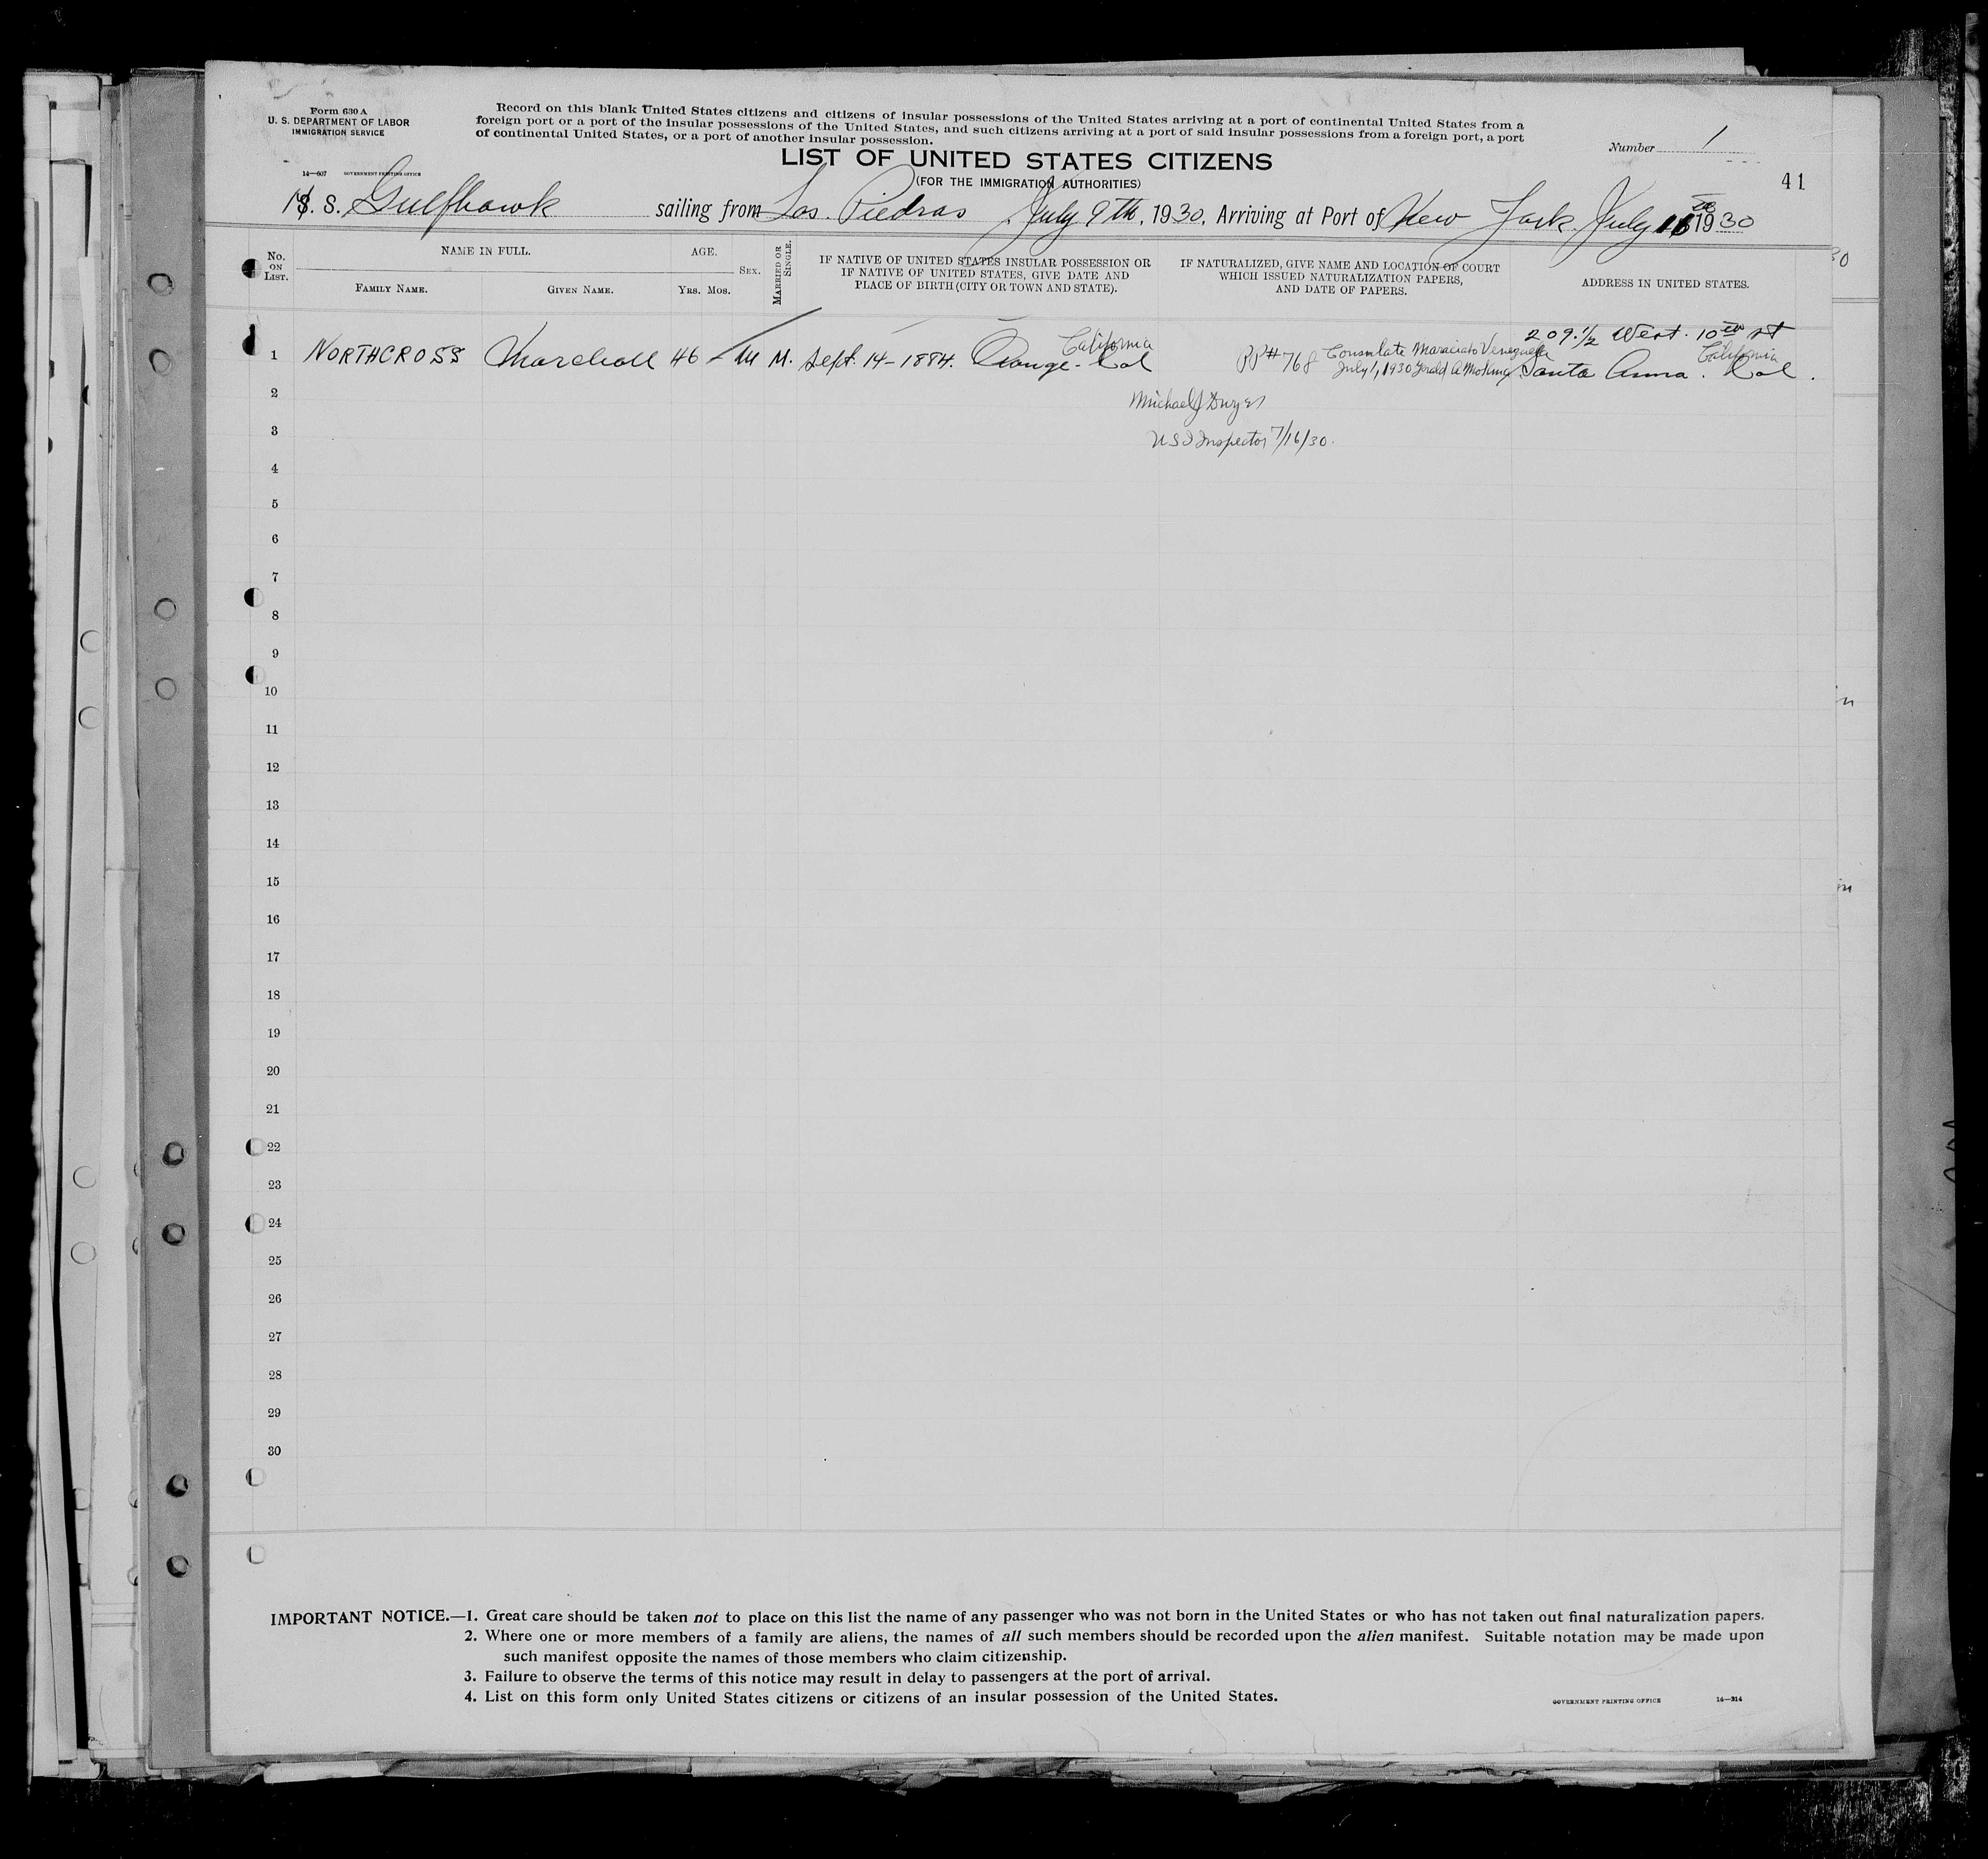 Form 630 A
U. S. DEPARTMENT OF LABOR
IMMIGRATION SERVICE
14—607 GOVERNMENT PRINTING OFFICE
Record on this blank United States citizens and citizens of insular possessions of the United States arriving at a port of continental United States from a
foreign port or a port of the insular possessions of the United States, and such citizens arriving at a port of said insular possessions from a foreign port, a port
of continental United States, or a port of another insular possession.
LIST OF UNITED STATES CITIZENS
(FOR THE IMMIGRATION AUTHORITIES)
Number 1
41
S. Gulfhawk sailing from Las Piedras, July 9th, 1930, Arriving at Port of New York July 16th 1930
No. ON LIST.
NAME IN FULL.
FAMILY NAME.
GIVEN NAME.
AGE.
YRS. MOS.
SEX.
MARRIED OR SINGLE.
IF NATIVE OF UNITED STATES INSULAR POSSESSION OR
IF NATIVE OF UNITED STATES, GIVE DATE AND
PLACE OF BIRTH (CITY OR TOWN AND STATE).
IF NATURALIZED, GIVE NAME AND LOCATION OF COURT
WHICH ISSUED NATURALIZATION PAPERS,
AND DATE OF PAPERS.
ADDRESS IN UNITED STATES.
1 NORTHCROSS Marchall 46 M M. Sept. 14-1884. Orange. Cal California
PP#768 Consulate Maracaibo Venezuela
July 1, 1930 Gerald A Mokma
209.½ West. 10th St
Santa Anna. Cal. California
2 Michael J Dwyer
3 USI Inspector 7/16/30.
4
5
6
7
8
9
10
11
12
13
14
15
16
17
18
19
20
21
22
23
24
25
26
27
28
29
30
IMPORTANT NOTICE.—1. Great care should be taken not to place on this list the name of any passenger who was not born in the United States or who has not taken out final naturalization papers.
2. Where one or more members of a family are aliens, the names of all such members should be recorded upon the alien manifest. Suitable notation may be made upon
such manifest opposite the names of those members who claim citizenship.
3. Failure to observe the terms of this notice may result in delay to passengers at the port of arrival.
4. List on this form only United States citizens or citizens of an insular possession of the United States.
GOVERNMENT PRINTING OFFICE 14—314